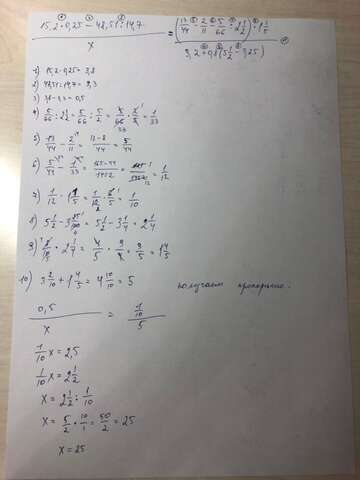 15,2·0,25 − 48,51:14,7 / x = (13/44 − 2/11 − 5/66 : 2 1/2) · 1 1/5 / 3,2 + 0,8 (5 1/2 − 3,25)
1) 15,2·0,25 = 3,8
2) 48,51:14,7 = 3,3
3) 3,8 − 3,3 = 0,5
4) 5/66 : 2 1/2 = 5/66 : 5/2 = 5/66 · 2/5 = 1/33
5) 13/44 − 2/11 = 13−8/44 = 5/44
6) 5/44 − 1/33 = = 1/12
7) 1/12 · 1 1/5 = 1/12 · 6/5 = 1/10
8) 5 1/2 − 3 25/100 = 5 1/2 − 3 1/4 = 2 1/4
9) 8/10 · 2 1/4 = 4/5 · 9/4 = 9/5 = 1 4/5
10) 3 2/10 + 1 4/5 = 4 10/10 = 5 получаем пропорцию.
0,5 / x = 1/10 / 5
1/10 x = 2,5
1/10 x = 2 1/2
x = 2 1/2 : 1/10
x = 5/2 · 10/1 = 50/2 = 25
x = 25